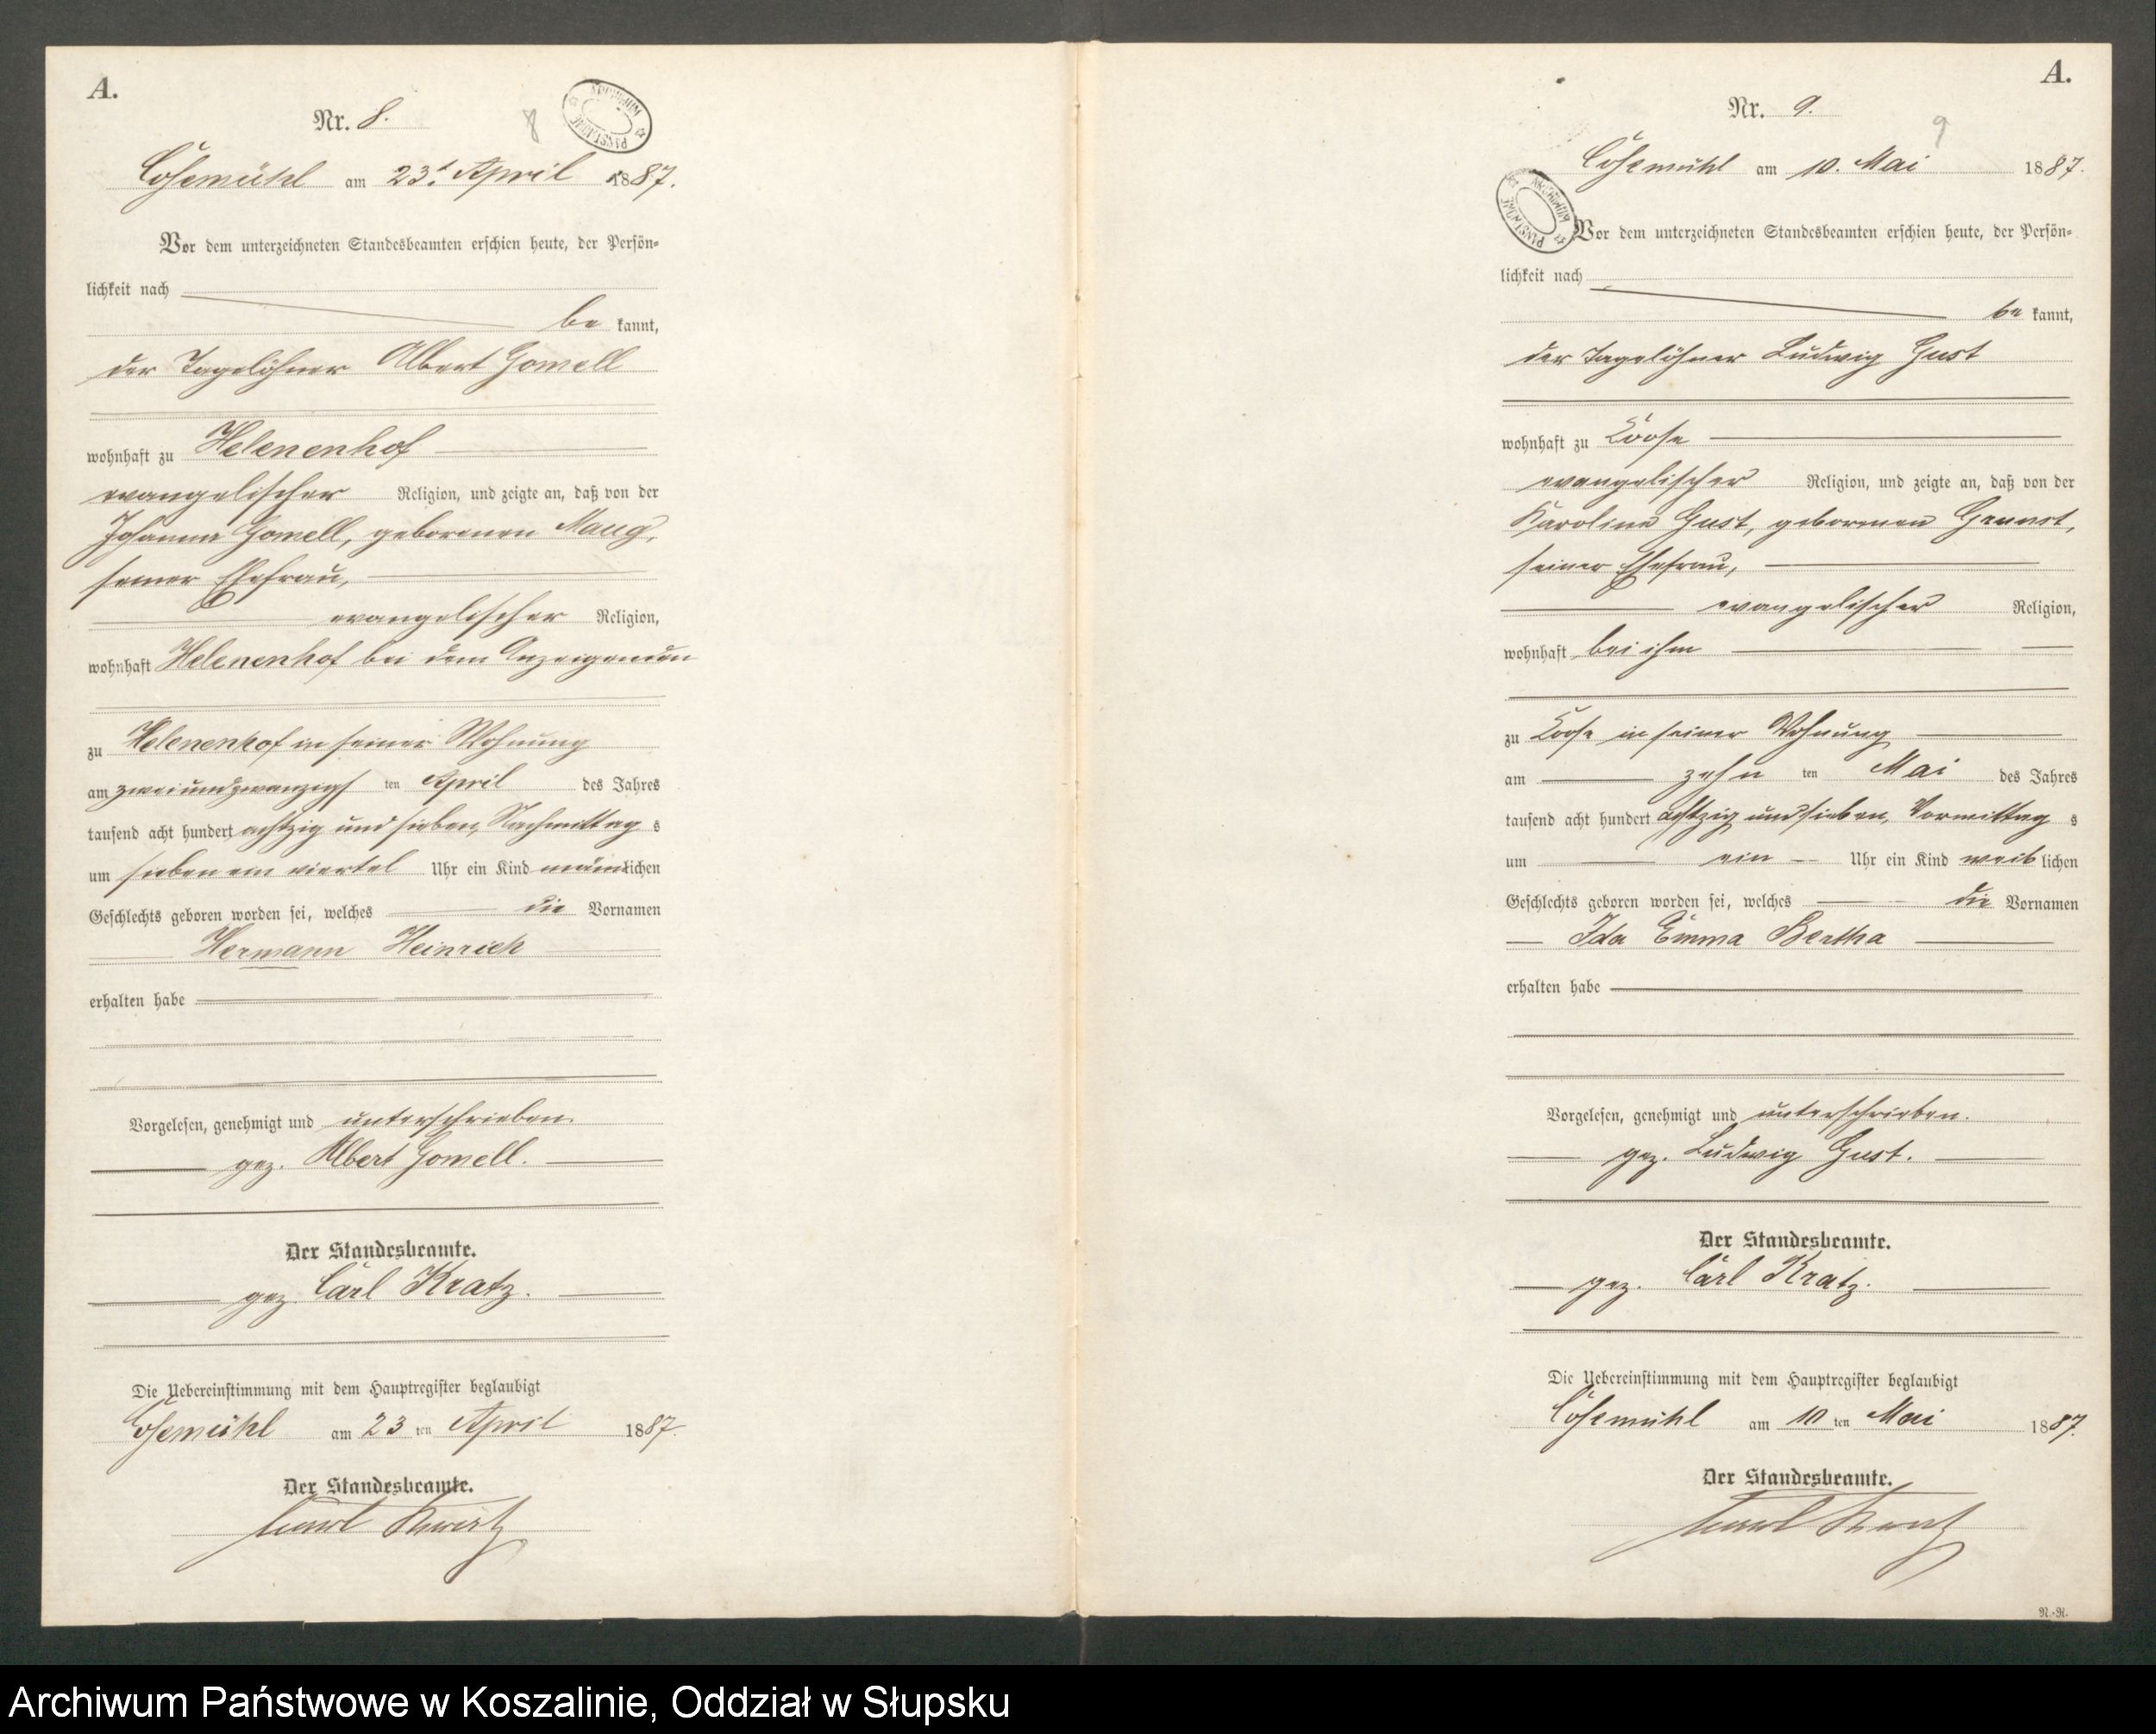 A.
Nr. 8.
8
ARCHIWUM PAŃSTWOWE
Cosemühl am 23t. April 1887.
Vor dem unterzeichneten Standesbeamten erschien heute, der Persön-
lichkeit nach
be kannt,
der Tagelöhner Albert Gomell
wohnhaft zu Helenenhof
evangelischer Religion, und zeigte an, daß von der
Johanna Gomell, geborenen
seiner Ehefrau,
evangelischer Religion,
wohnhaft Helenenhof bei dem Anzeigenden
zu Helenenhof in seiner Wohnung
am zweiundzwanzigs ten April des Jahres
tausend acht hundert achtzig und sieben, Nachmittag s
um sieben ein viertel Uhr ein Kind männlichen
Geschlechts geboren worden sei, welches die Vornamen
Hermann Heinrich
erhalten habe
Vorgelesen, genehmigt und unterschrieben.
gez. Albert Gomell.
Der Standesbeamte.
gez. Carl Kratz.
Die Uebereinstimmung mit dem Hauptregister beglaubigt
Cosemühl am 23 ten April 1887.
Der Standesbeamte.
Carl Kratz
A.
Nr. 9.
9
Cosemühl am 10. Mai 1887.
ARCHIWUM PAŃSTWOWE
Vor dem unterzeichneten Standesbeamten erschien heute, der Persön-
lichkeit nach
be kannt,
der Tagelöhner Ludwig Gust
wohnhaft zu Coose
evangelischer Religion, und zeigte an, daß von der
Karoline Gust, geborenen
seiner Ehefrau,
evangelischer Religion,
wohnhaft bei ihm
zu Coose in seiner Wohnung
am zehn ten Mai des Jahres
tausend acht hundert achtzig und sieben, Vormittag s
um ein Uhr ein Kind weib lichen
Geschlechts geboren worden sei, welches die Vornamen
Ida Emma Bertha
erhalten habe
Vorgelesen, genehmigt und unterschrieben.
gez. Ludwig Gust.
Der Standesbeamte.
gez. Carl Kratz.
Die Uebereinstimmung mit dem Hauptregister beglaubigt
Cosemühl am 10 ten Mai 1887.
Der Standesbeamte.
Carl Kratz
R.-R.
Archiwum Państwowe w Koszalinie, Oddział w Słupsku